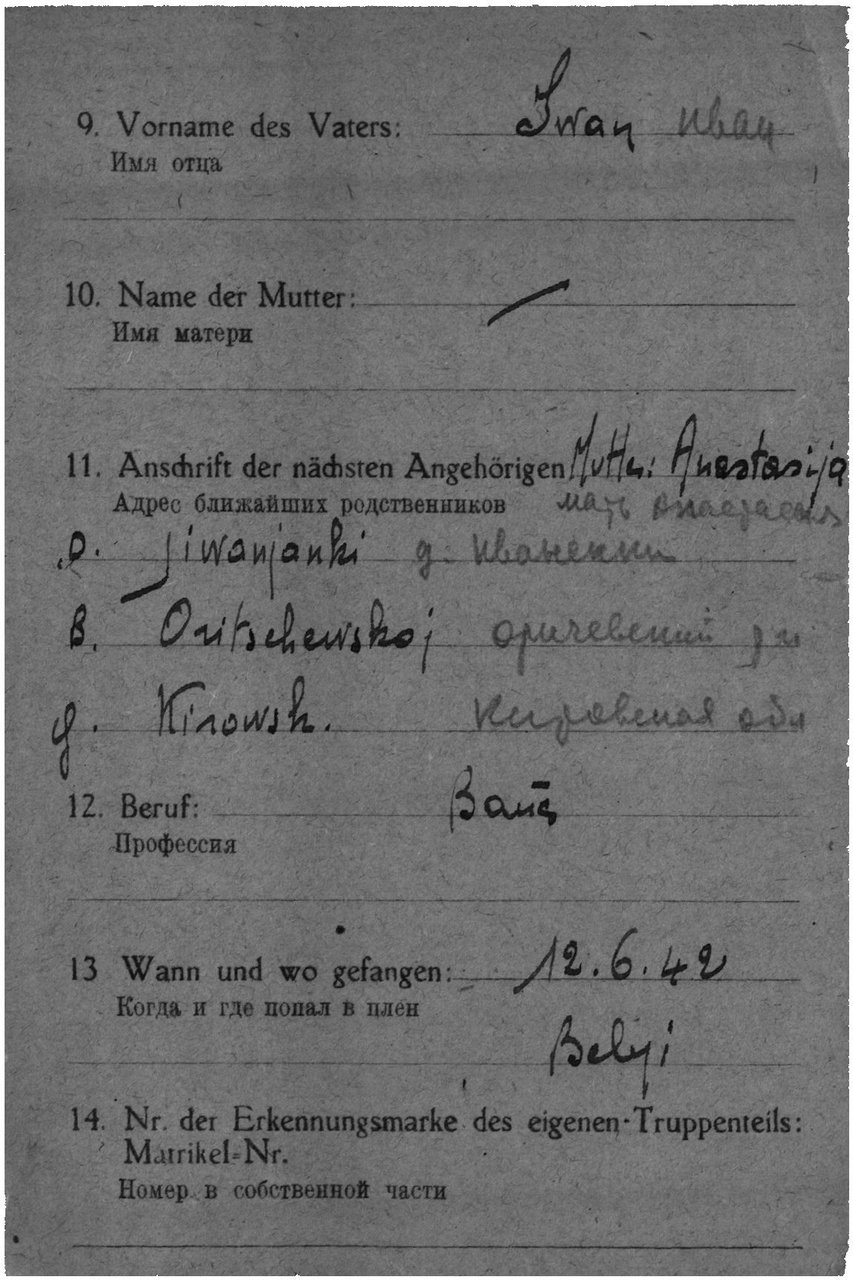 9. Vorname des Vaters: Iwan Иван
Имя отца
10. Name der Mutter: —
Имя матери
11. Anschrift der nächsten Angehörigen Mutter: Anastasija
Адрес ближайших родственников мать Анастасия
D. Jiwanjanki д.
B. Oritschewskoj оричевский
g. Kirowsk. Кировская обл
12. Beruf:
Профессия
13 Wann und wo gefangen: 12.6.42
Когда и где попал в плен
Belyi
14. Nr. der Erkennungsmarke des eigenen Truppenteils:
Matrikel-Nr.
Номер в собственной части